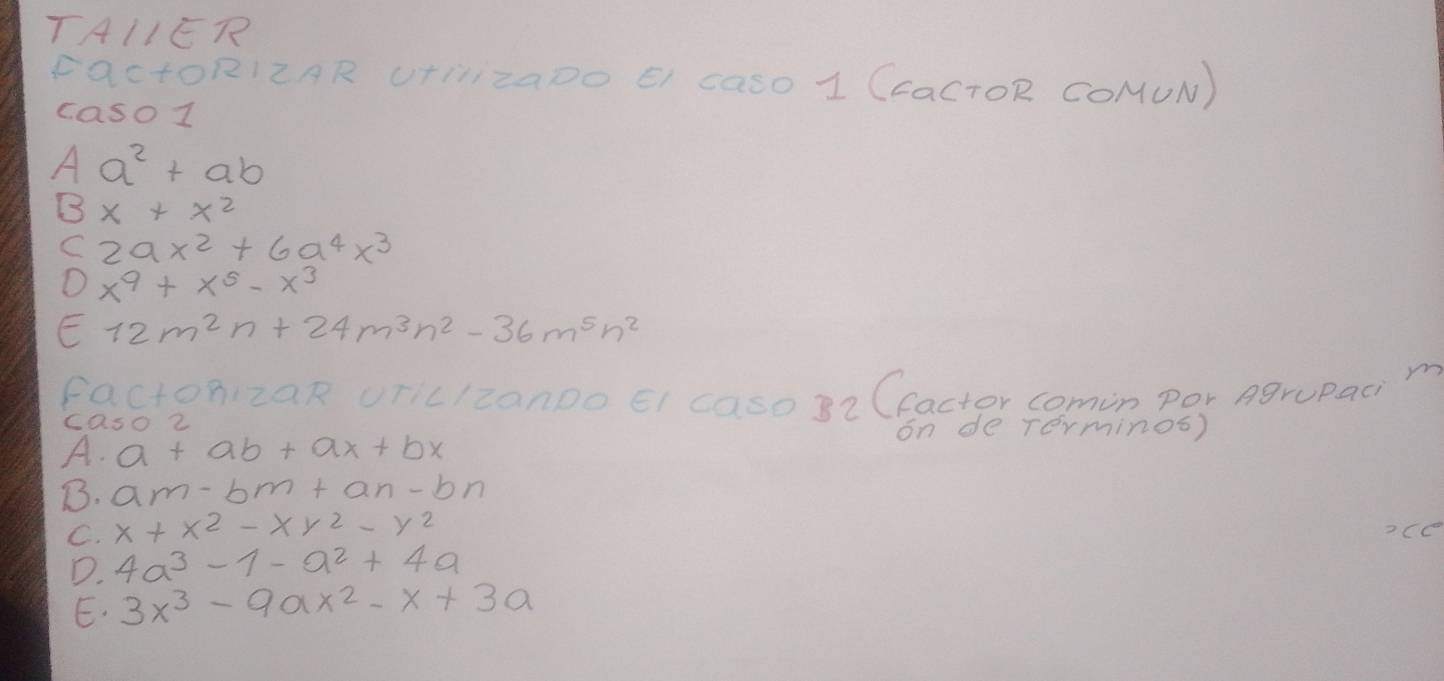 TAllER
FactoRIZAR UtilizaDO El caso 1 (FaCTOR COMUN)
caso 1
A a² + ab
B x + x²
C 2ax² + 6a⁴x³
D x⁹ + x⁵ - x³
E 12m²n + 24m³n² - 36m⁵n²
FactoRizaR UTiLizanDO El caso 2 (factor comun por Agrupaci
ón de Términos)
caso 2
A. a + ab + ax + bx
B. am - bm + an - bn
C. x + x² - xy² - y²
D. 4a³ - 1 - a² + 4a
E. 3x³ - 9ax² - x + 3a